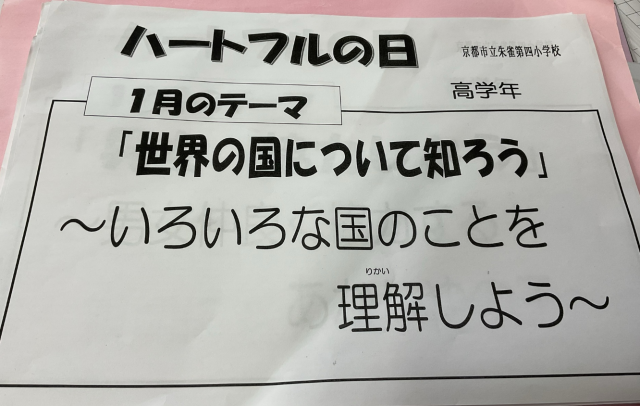 ハートフルの日
京都市立朱雀第四小学校
高学年
1月のテーマ
「世界の国について知ろう」
～いろいろな国のことを
りかい
理解しよう～